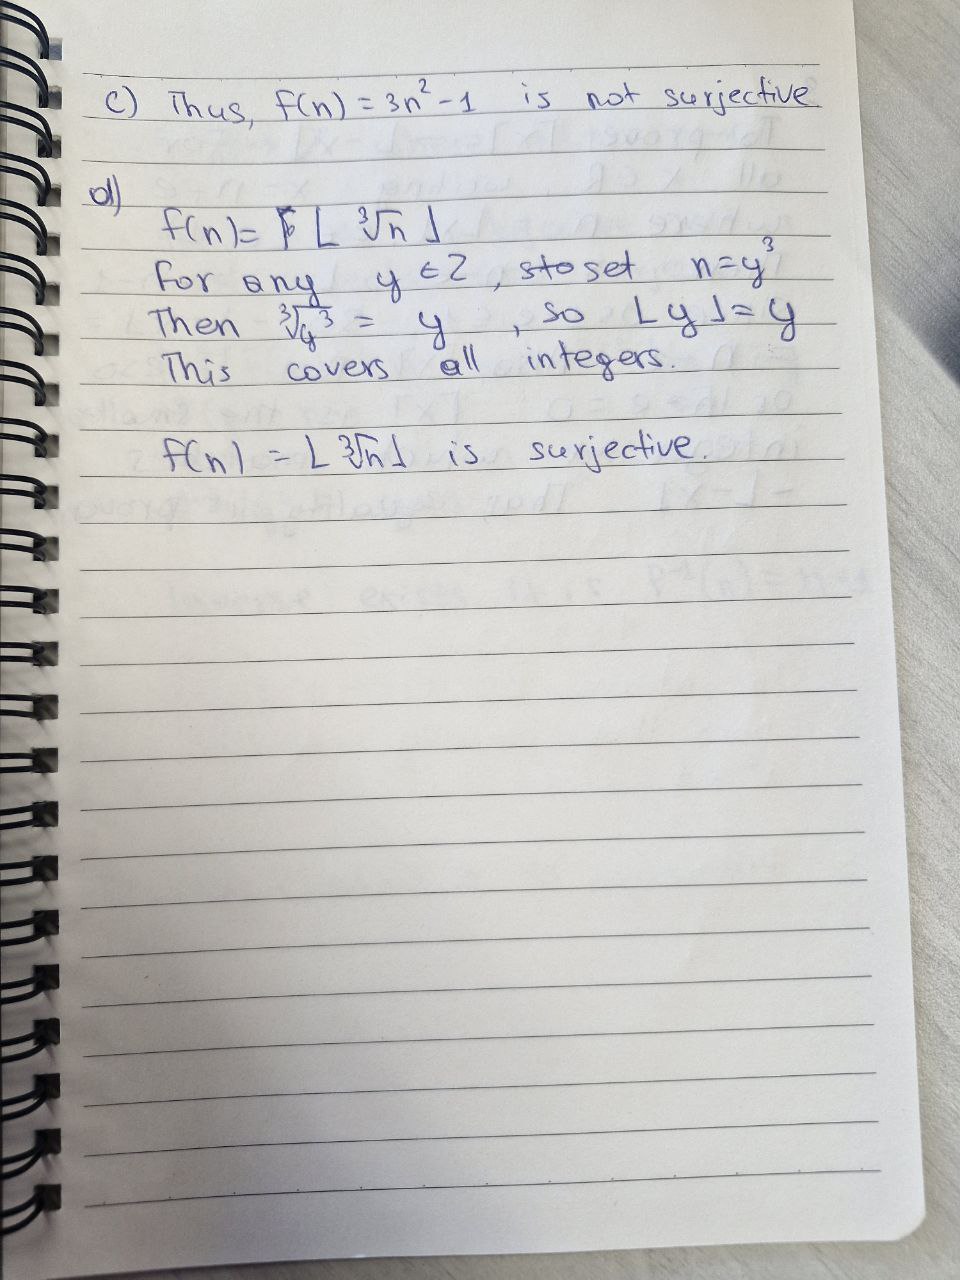 c) Thus, f(n) = 3n² - 1 is not surjective
d)
f(n) = ⌊ ∛n ⌋
For any y ∈ Z, set n = y³
Then ∛y³ = y, so ⌊y⌋ = y
This covers all integers.
f(n) = ⌊ ∛n ⌋ is surjective.